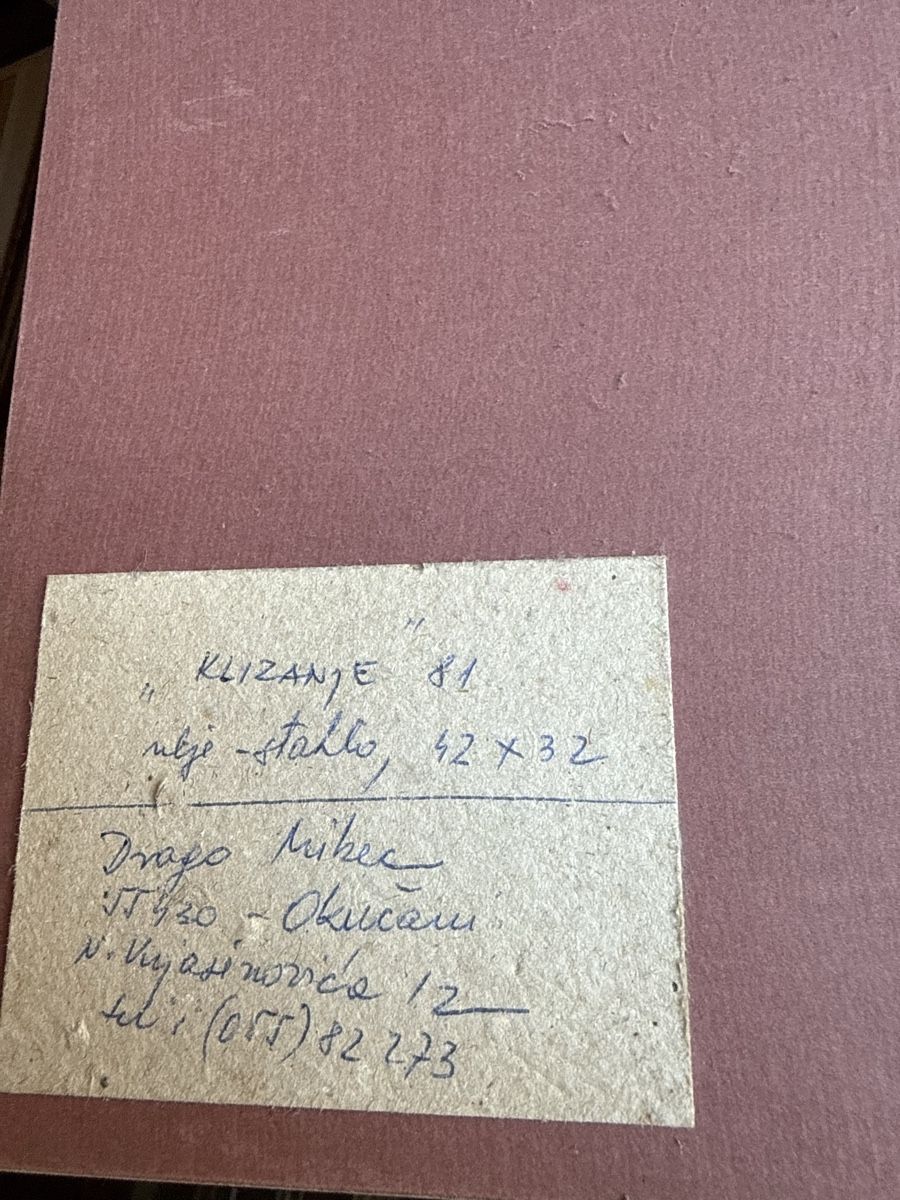 „KLIZANjE" 81
ulje - staklo, 42 x 32
Drago Mikec
55430 - Okučani
N. Vujasinovića 12
tel: (055) 82 273